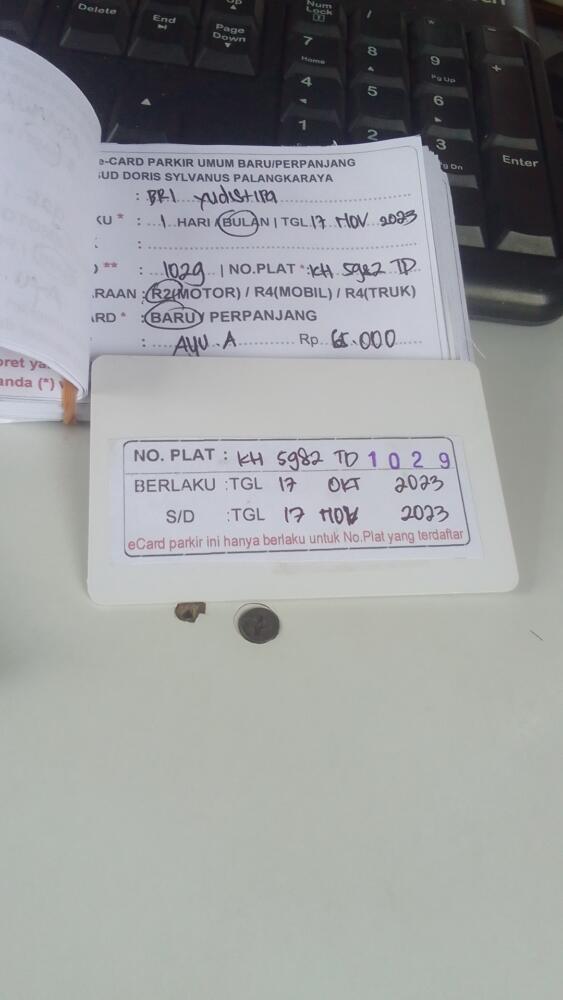 Delete
End
Page
Down
Num
Lock
/
*
-
+
7
Home
8
9
Pg Up
4
5
6
1
2
3
Pg Dn
Enter
e-CARD PARKIR UMUM BARU/PERPANJANG
SUD DORIS SYLVANUS PALANGKARAYA
: BRI Yudistira
KU * : 1 HARI / BULAN | TGL 17 NOV 2023
:
** : 1029 | NO.PLAT * : KH 5982 TD
RAAN : R2(MOTOR) / R4(MOBIL) / R4(TRUK)
ARD * : BARU / PERPANJANG
: AYU. A Rp 65.000
oret ya
anda (*)
NO. PLAT : KH 5982 TD 1029
BERLAKU : TGL 17 OKT 2023
S/D : TGL 17 NOV 2023
eCard parkir ini hanya berlaku untuk No.Plat yang terdaftar